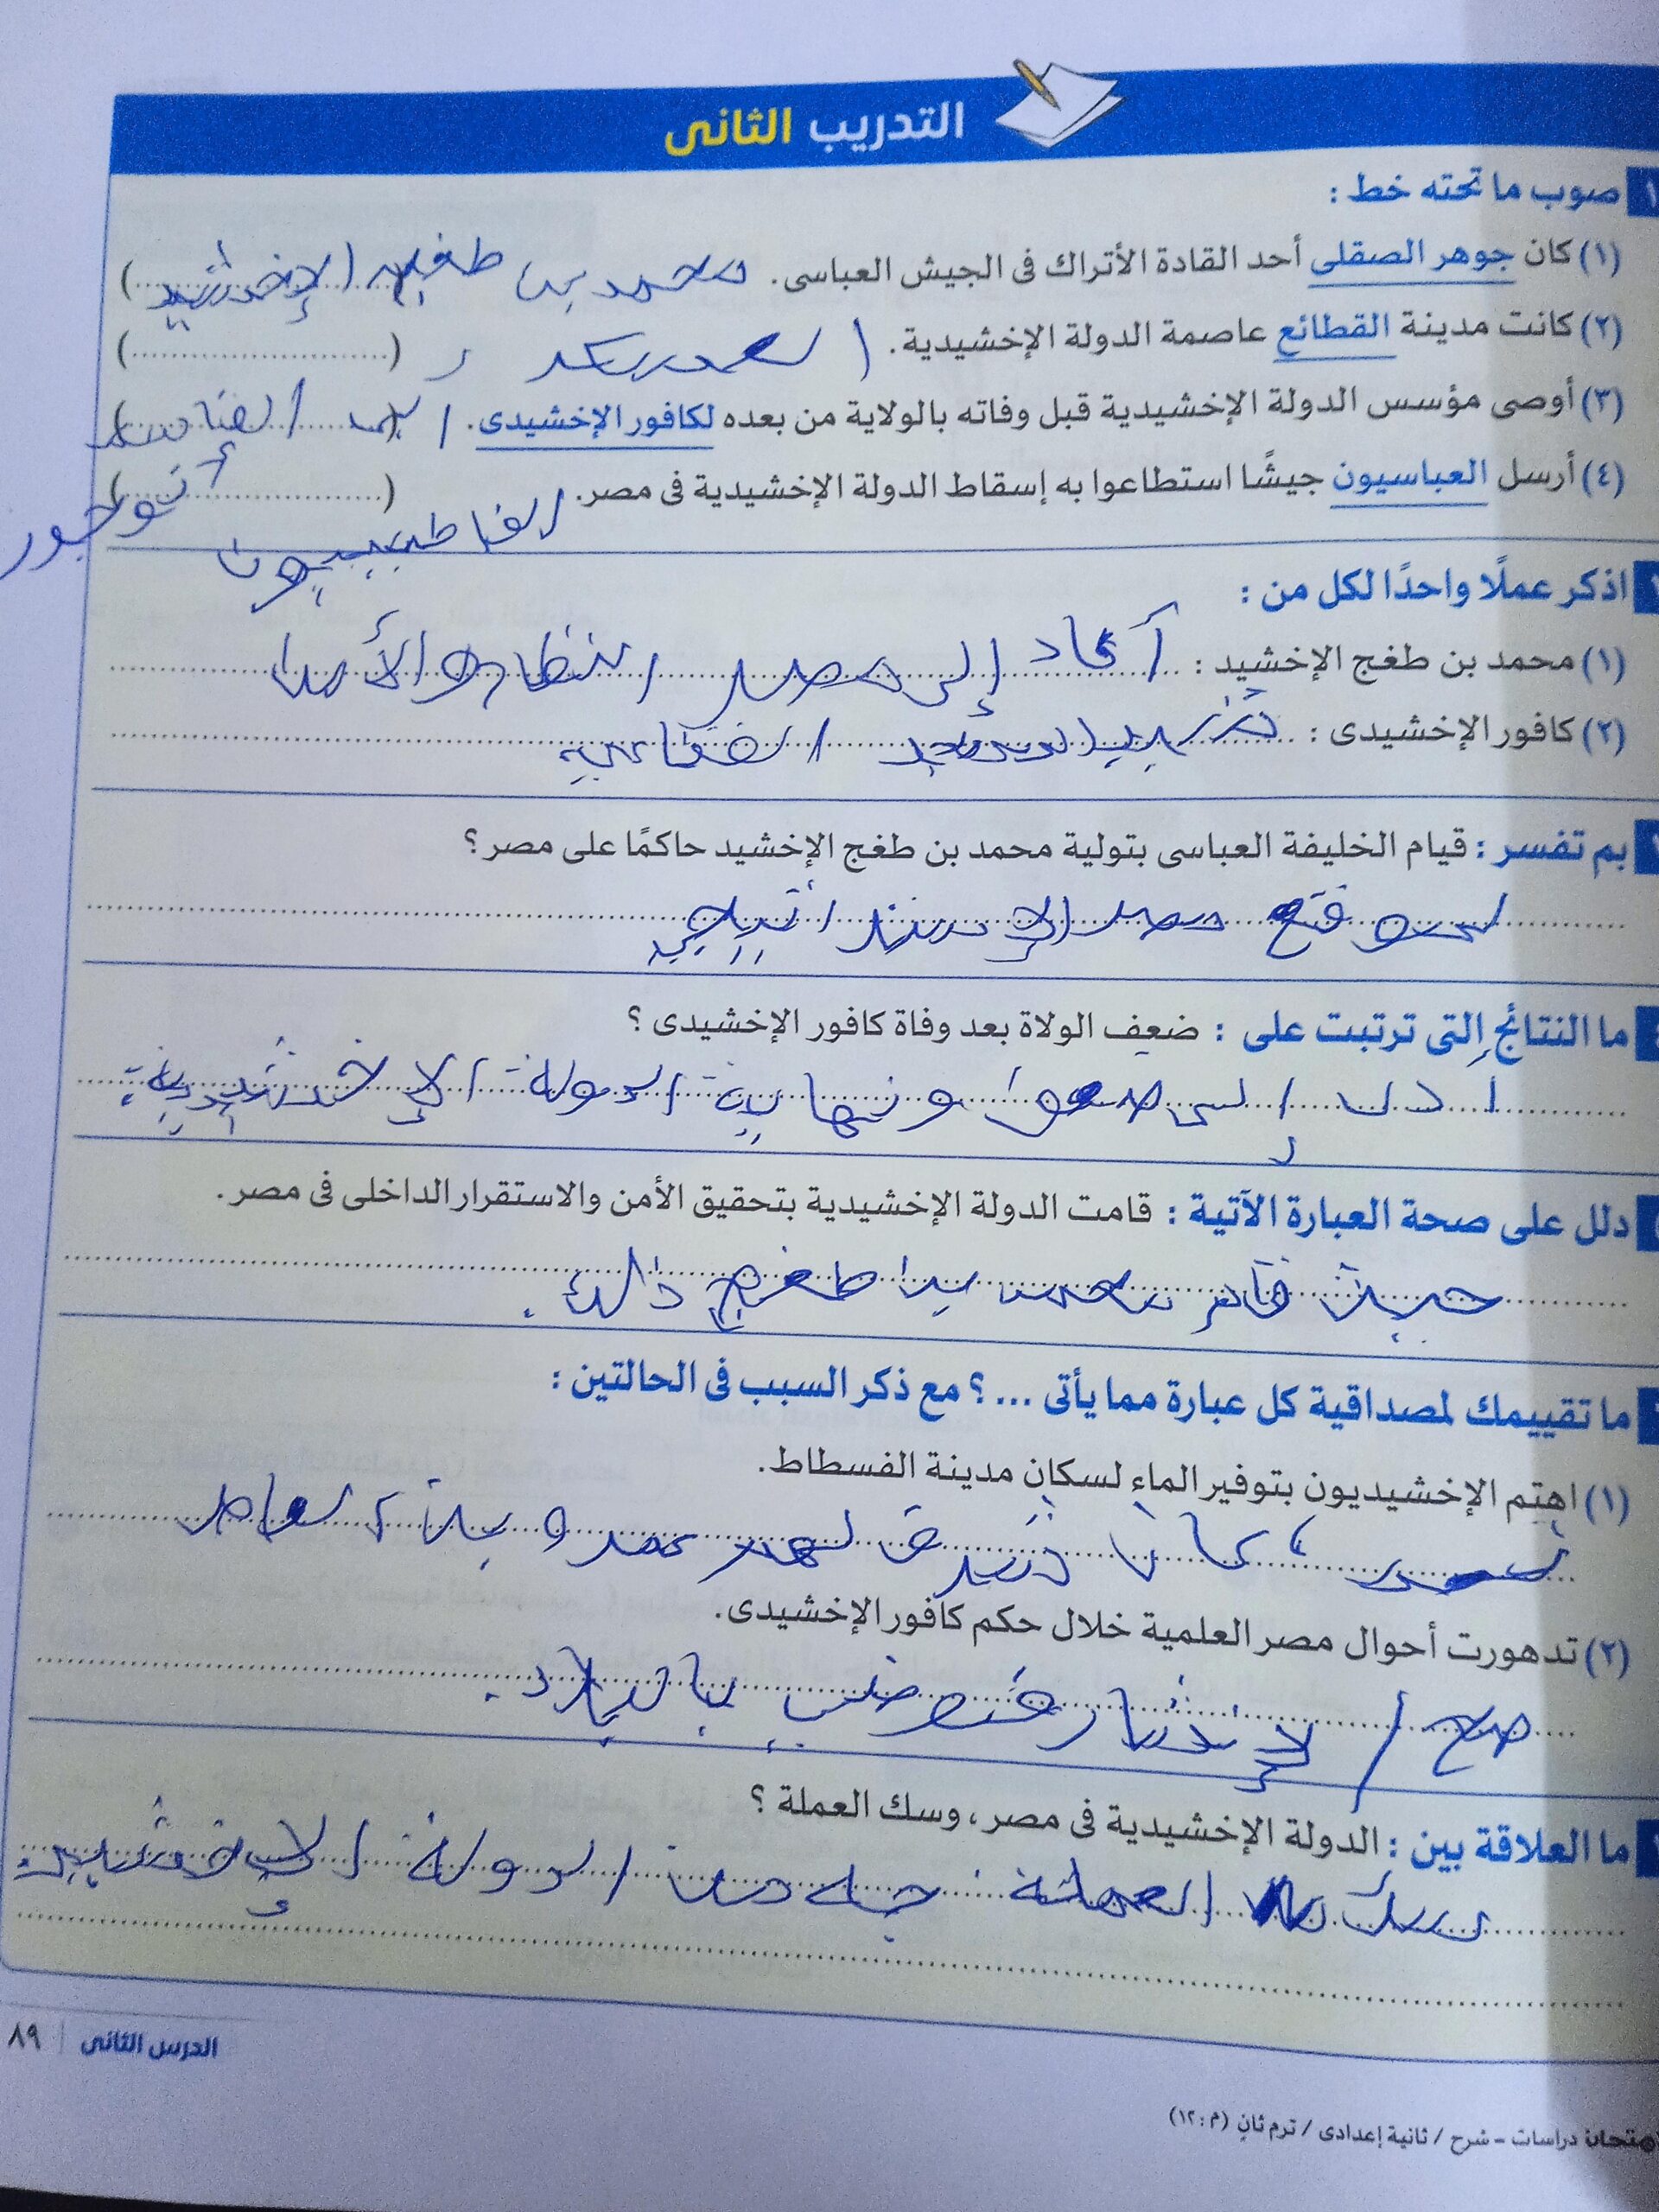 التدريب الثانى
١ صوب ما تحته خط :
(١) كان جوهر الصقلى أحد القادة الأتراك فى الجيش العباسى. محمد بن طغج الإخشيد (..............)
(٢) كانت مدينة القطائع عاصمة الدولة الإخشيدية. العسكر (..............)
(٣) أوصى مؤسس الدولة الإخشيدية قبل وفاته بالولاية من بعده لكافور الإخشيدى. (..............)
أنوجور
(٤) أرسل العباسيون جيشًا استطاعوا به إسقاط الدولة الإخشيدية فى مصر. (..............)
الفاطميون
اذكر عملًا واحدًا لكل من :
(١) محمد بن طغج الإخشيد : أعاد إلى مصر النظام والأمن
(٢) كافور الإخشيدى :
بم تفسر : قيام الخليفة العباسى بتولية محمد بن طغج الإخشيد حاكمًا على مصر ؟
لموقع مصر الإستراتيجي
ما النتائج التى ترتبت على : ضعف الولاة بعد وفاة كافور الإخشيدى ؟
أدت إلى ضعف ونهاية الدولة الإخشيدية
دلل على صحة العبارة الآتية : قامت الدولة الإخشيدية بتحقيق الأمن والاستقرار الداخلى فى مصر.
حيث قام محمد بن طغج ذلك.
ما تقييمك لمصداقية كل عبارة مما يأتى ... ؟ مع ذكر السبب فى الحالتين :
(١) اهتم الإخشيديون بتوفير الماء لسكان مدينة الفسطاط.
(٢) تدهورت أحوال مصر العلمية خلال حكم كافور الإخشيدى.
صح / لإنتشار فوضى بالبلاد.
ما العلاقة بين : الدولة الإخشيدية فى مصر، وسك العملة ؟
العملة الدولة الإخشيدية
الدرس الثانى | ٨٩
امتحان دراسات - شرح / ثانية إعدادى / ترم ثان (م : ١٢)